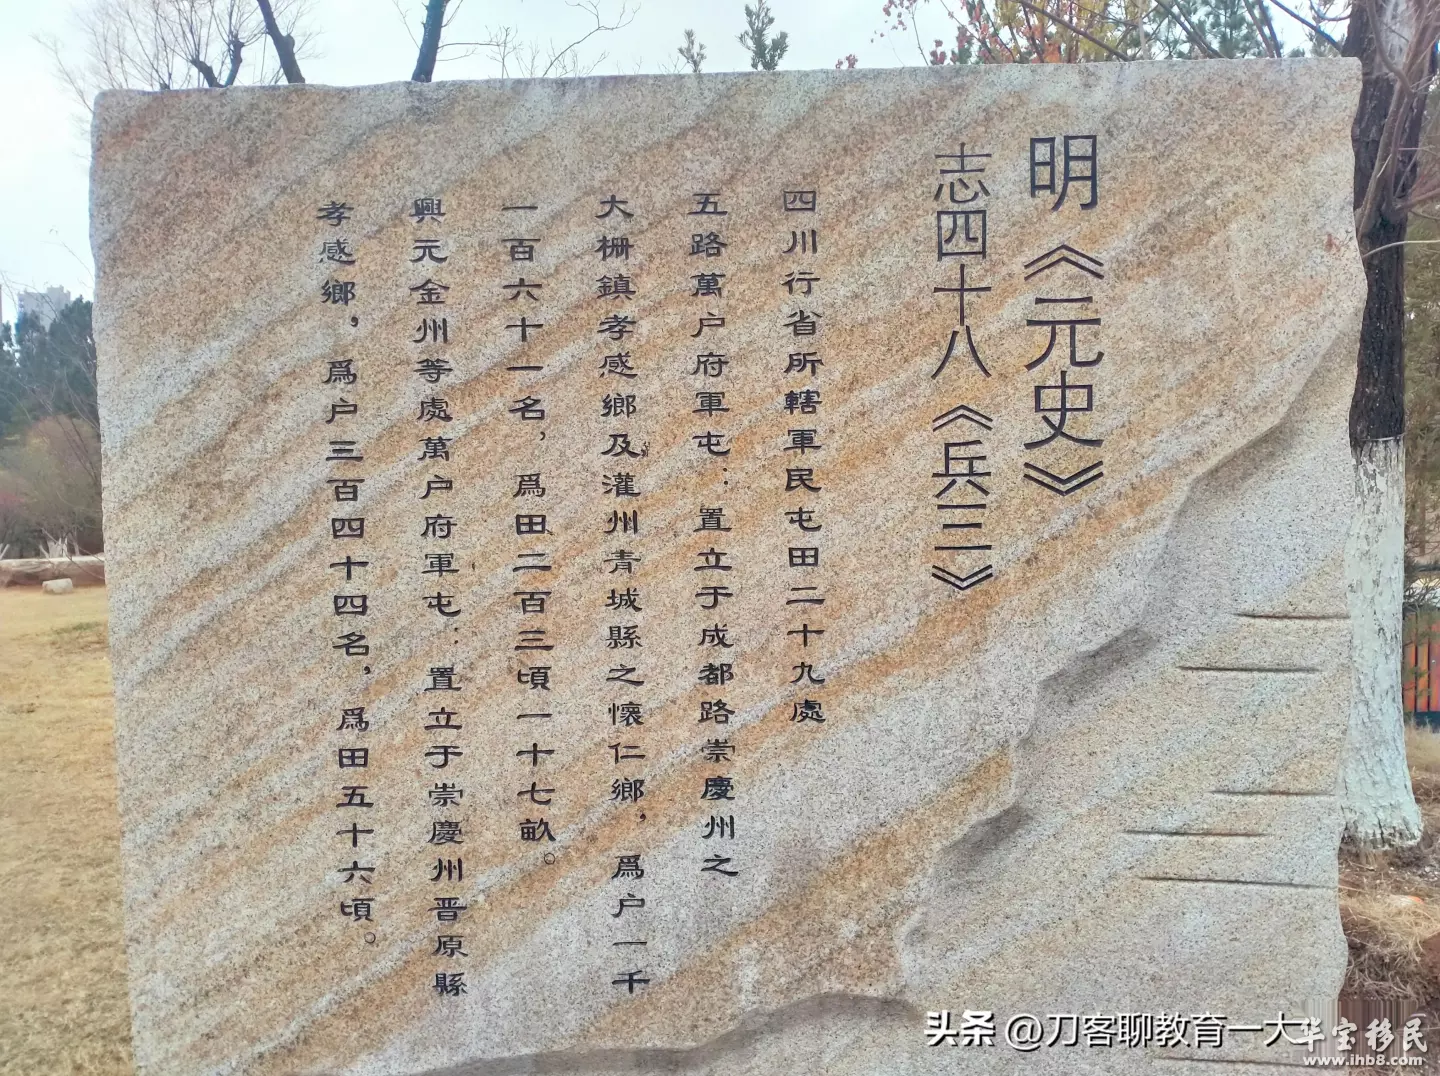 明《元史》
志四十八《兵三》
四川行省所轄軍民屯田二十九處
五路萬户府軍屯：置立于成都路崇慶州之
大栅鎮孝感鄉及灌州青城縣之懷仁鄉，爲户一千
一百六十一名，爲田二百三頃一十七畝。
興元金州等處萬户府軍屯：置立于崇慶州晋原縣
孝感鄉，爲户三百四十四名，爲田五十六頃。
头条 @刀客聊教育一大
华宝移民
www.ihb8.com